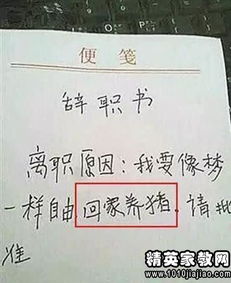 便笺
辞职书
离职原因：我要像梦
一样自由.回家养猪.请批
准
精英家教网
www.1010jiajiao.com